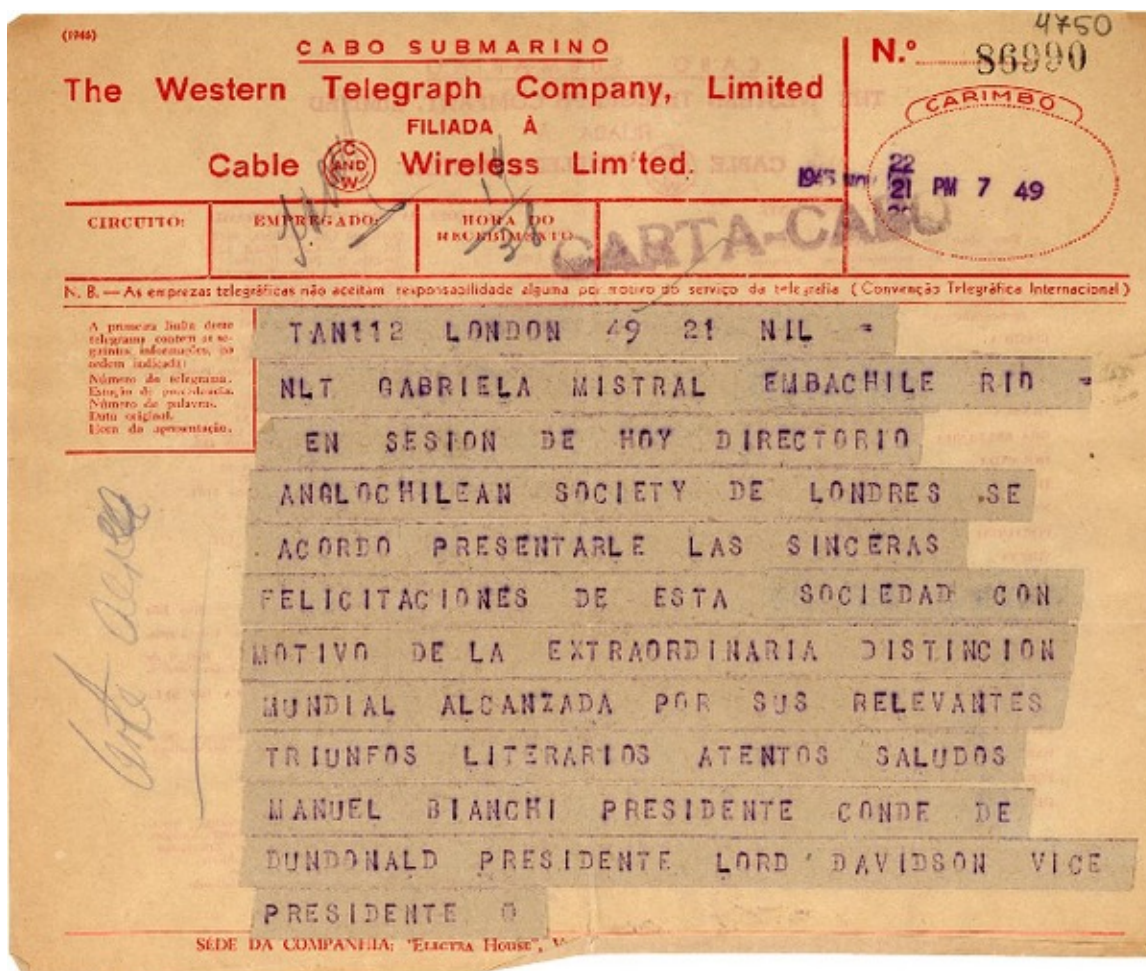 (1946)
4750
CABO SUBMARINO
N.º 86990
The Western Telegraph Company, Limited
CARIMBO
FILIADA À
Cable C AND W Wireless Lim'ted.
1945 NOV 22
21 PM 7 49
CIRCUITO:
EMPREGADO:
HORA DO RECEBIMENTO
CARTA-CABO
N. B. — As emprezas telegráficas não aceitam responsabilidade alguma por motivo do serviço da telegrafia (Convenção Telegráfica Internacional)
A primeira linha deste
telegrama contem as se-
guintes informações, na
ordem indicada:
Número do telegrama.
Estação de procedencia.
Número de palavras.
Data original.
Hora da apresentação.
TAN112 LONDON 49 21 NIL =
NLT GABRIELA MISTRAL EMBACHILE RIO =
EN SESION DE HOY DIRECTORIO
ANGLOCHILEAN SOCIETY DE LONDRES SE
ACORDO PRESENTARLE LAS SINCERAS
FELICITACIONES DE ESTA SOCIEDAD CON
MOTIVO DE LA EXTRAORDINARIA DISTINCION
MUNDIAL ALCANZADA POR SUS RELEVANTES
TRIUNFOS LITERARIOS ATENTOS SALUDOS
MANUEL BIANCHI PRESIDENTE CONDE DE
DUNDONALD PRESIDENTE LORD DAVIDSON VICE
PRESIDENTE
SÉDE DA COMPANHIA: "ELECTRA HOUSE",